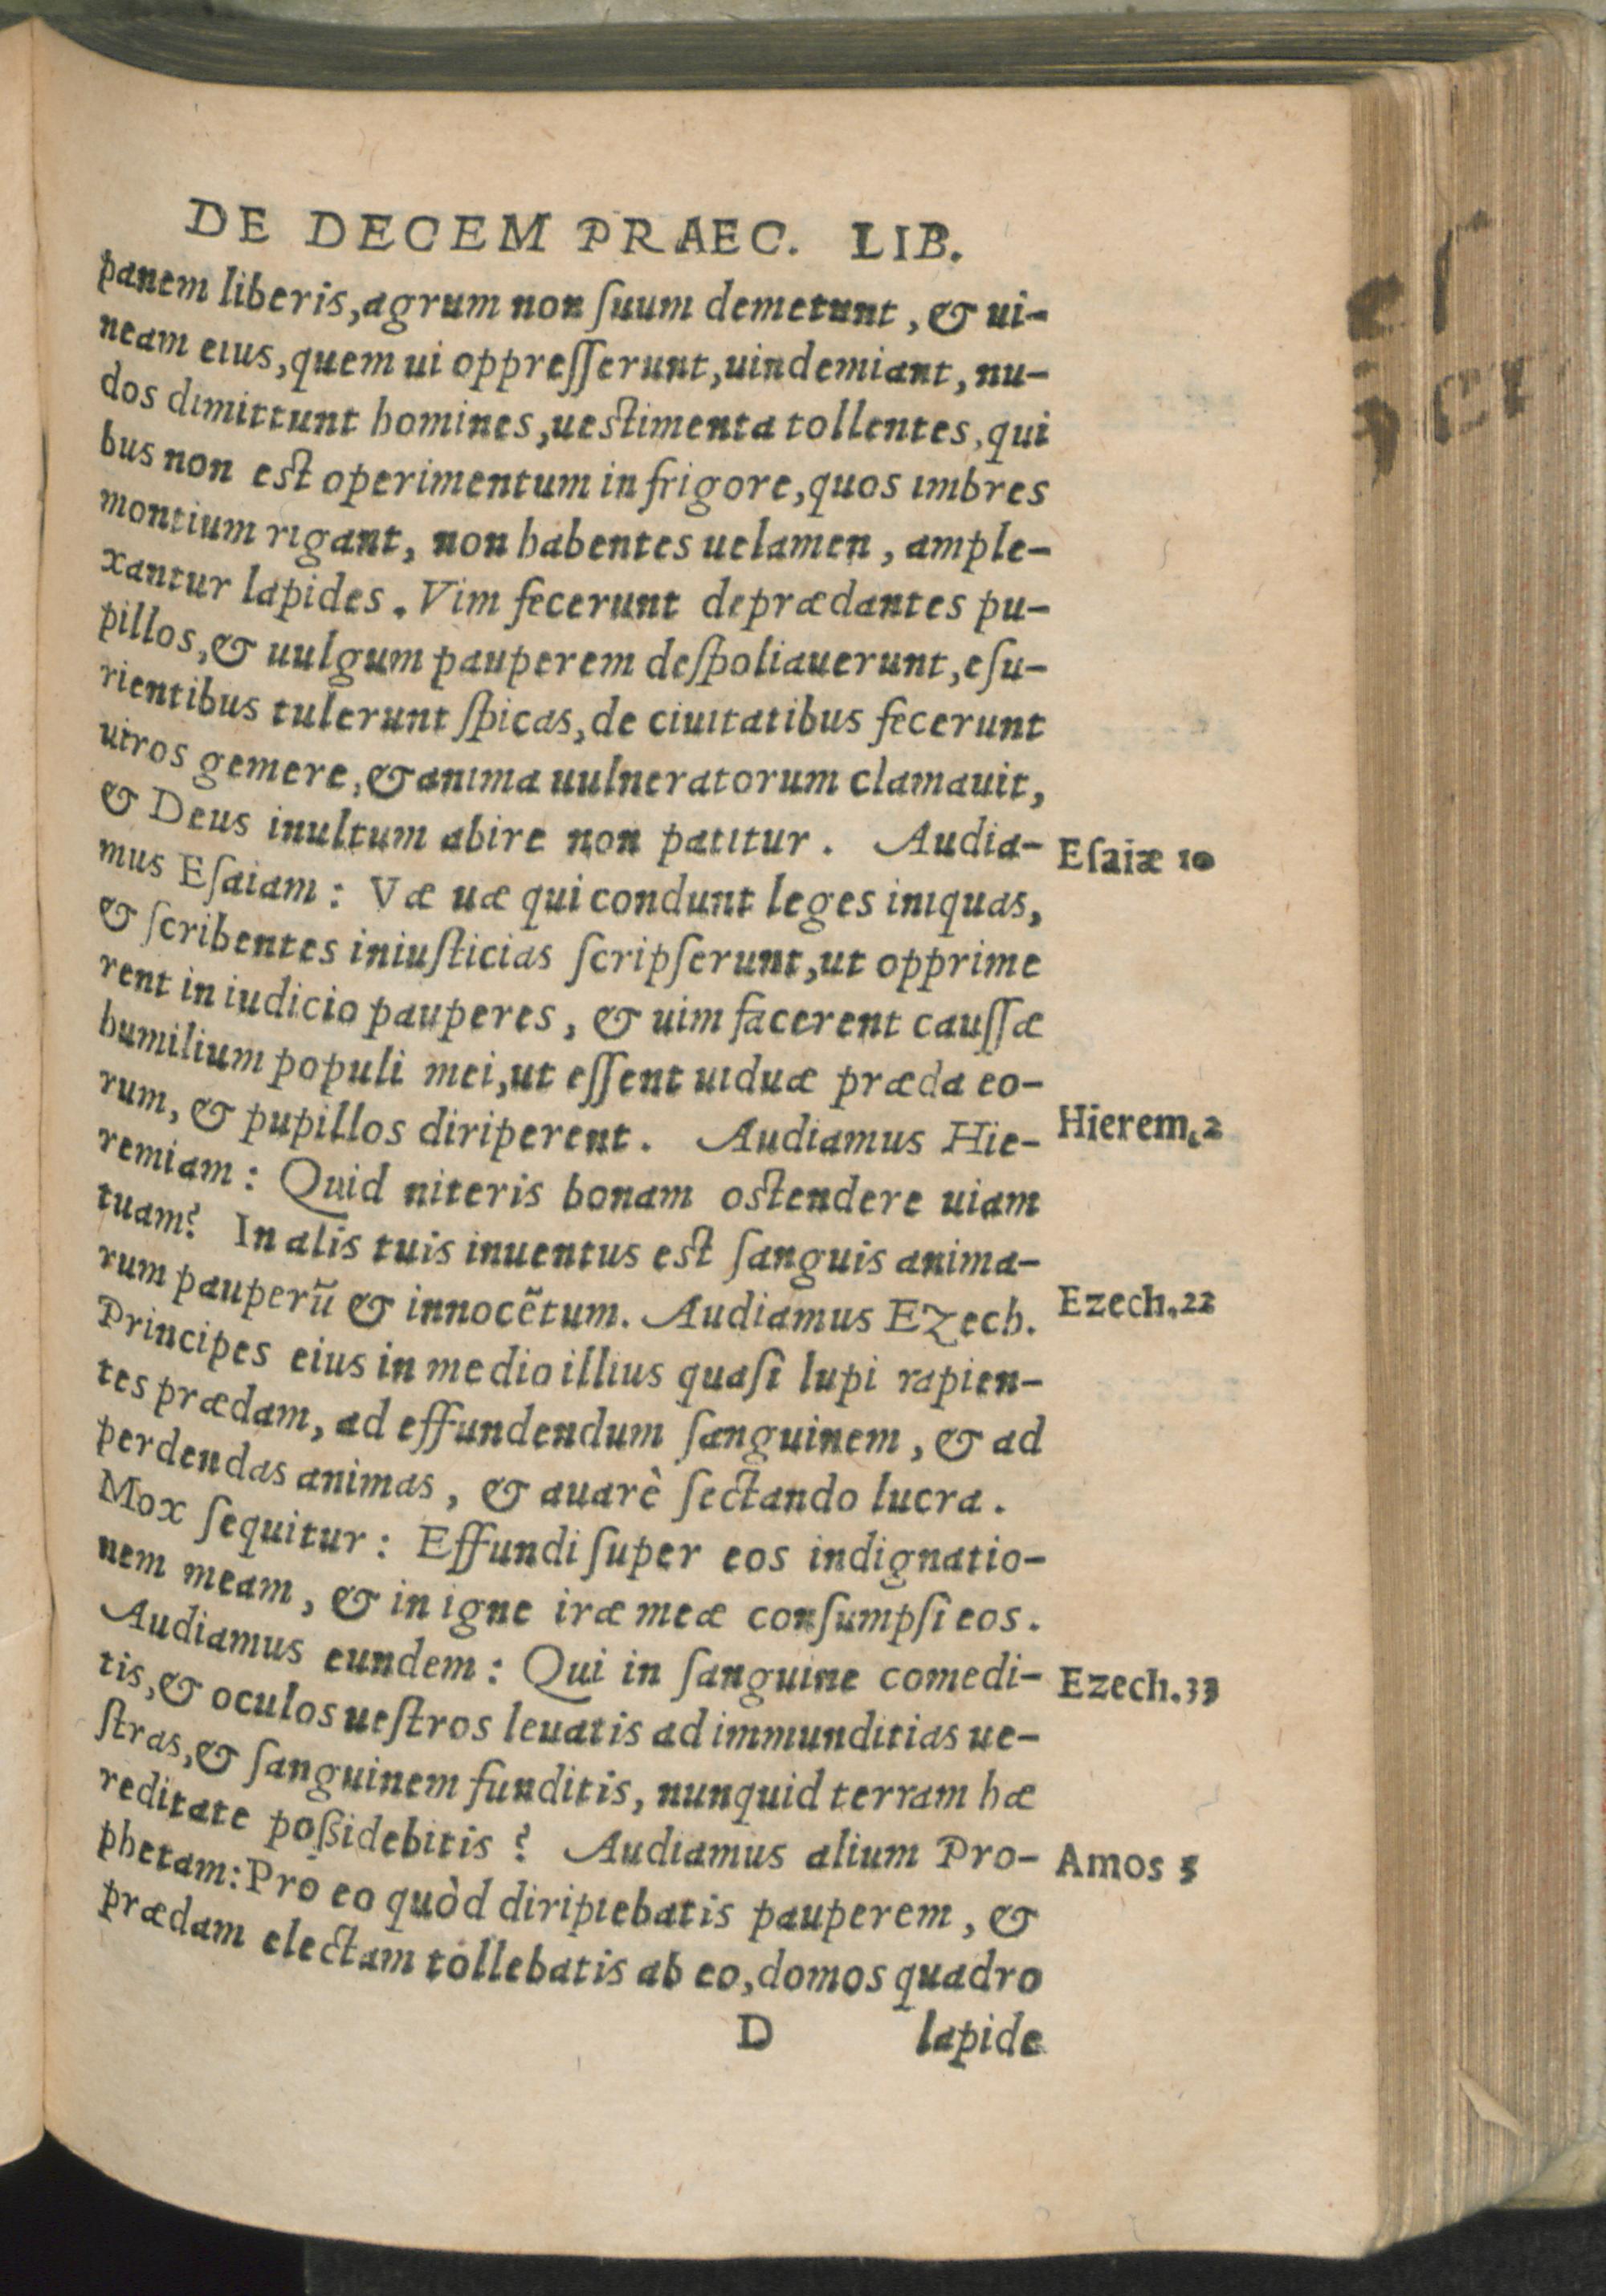 DE DECEM PRAEC. LIB.
panem liberis, agrum non ſuum demetunt, & ui-
neam eius, quem ui oppreſſerunt, uindemiant, nu-
dos dimittunt homines, ueſtimenta tollentes, qui
bus non eſt operimentum in frigore, quos imbres
montium rigant, non habentes uelamen, ample-
xantur lapides. Vim fecerunt deprædantes pu-
pillos, & uulgum pauperem deſpoliauerunt, eſu-
rientibus tulerunt ſpicas, de ciuitatibus fecerunt
uiros gemere, & anima uulneratorum clamauit,
& Deus inultum abire non patitur. Audia-
Eſaiæ 10
mus Eſaiam: Væ uæ qui condunt leges iniquas,
& ſcribentes iniuſticias ſcripſerunt, ut opprime
rent in iudicio pauperes, & uim facerent cauſſæ
humilium populi mei, ut eſſent uiduæ præda eo-
rum, & pupillos diriperent. Audiamus Hie-
Hierem. 2
remiam: Quid niteris bonam oſtendere uiam
tuam? In alis tuis inuentus eſt ſanguis anima-
rum pauperũ & innocẽtum. Audiamus Ezech.
Ezech. 22
Principes eius in medio illius quaſi lupi rapien-
tes prædam, ad effundendum ſanguinem, & ad
perdendas animas, & auarè ſectando lucra.
Mox ſequitur: Effundi ſuper eos indignatio-
nem meam, & in igne iræ meæ conſumpſi eos.
Audiamus eundem: Qui in ſanguine comedi-
Ezech. 33
tis, & oculos ueſtros leuatis ad immunditias ue-
ſtras, & ſanguinem funditis, nunquid terram hæ
reditate poſsidebitis? Audiamus alium Pro-
Amos 5
phetam: Pro eo quòd diripiebatis pauperem, &
prædam electam tollebatis ab eo, domos quadro
D lapide